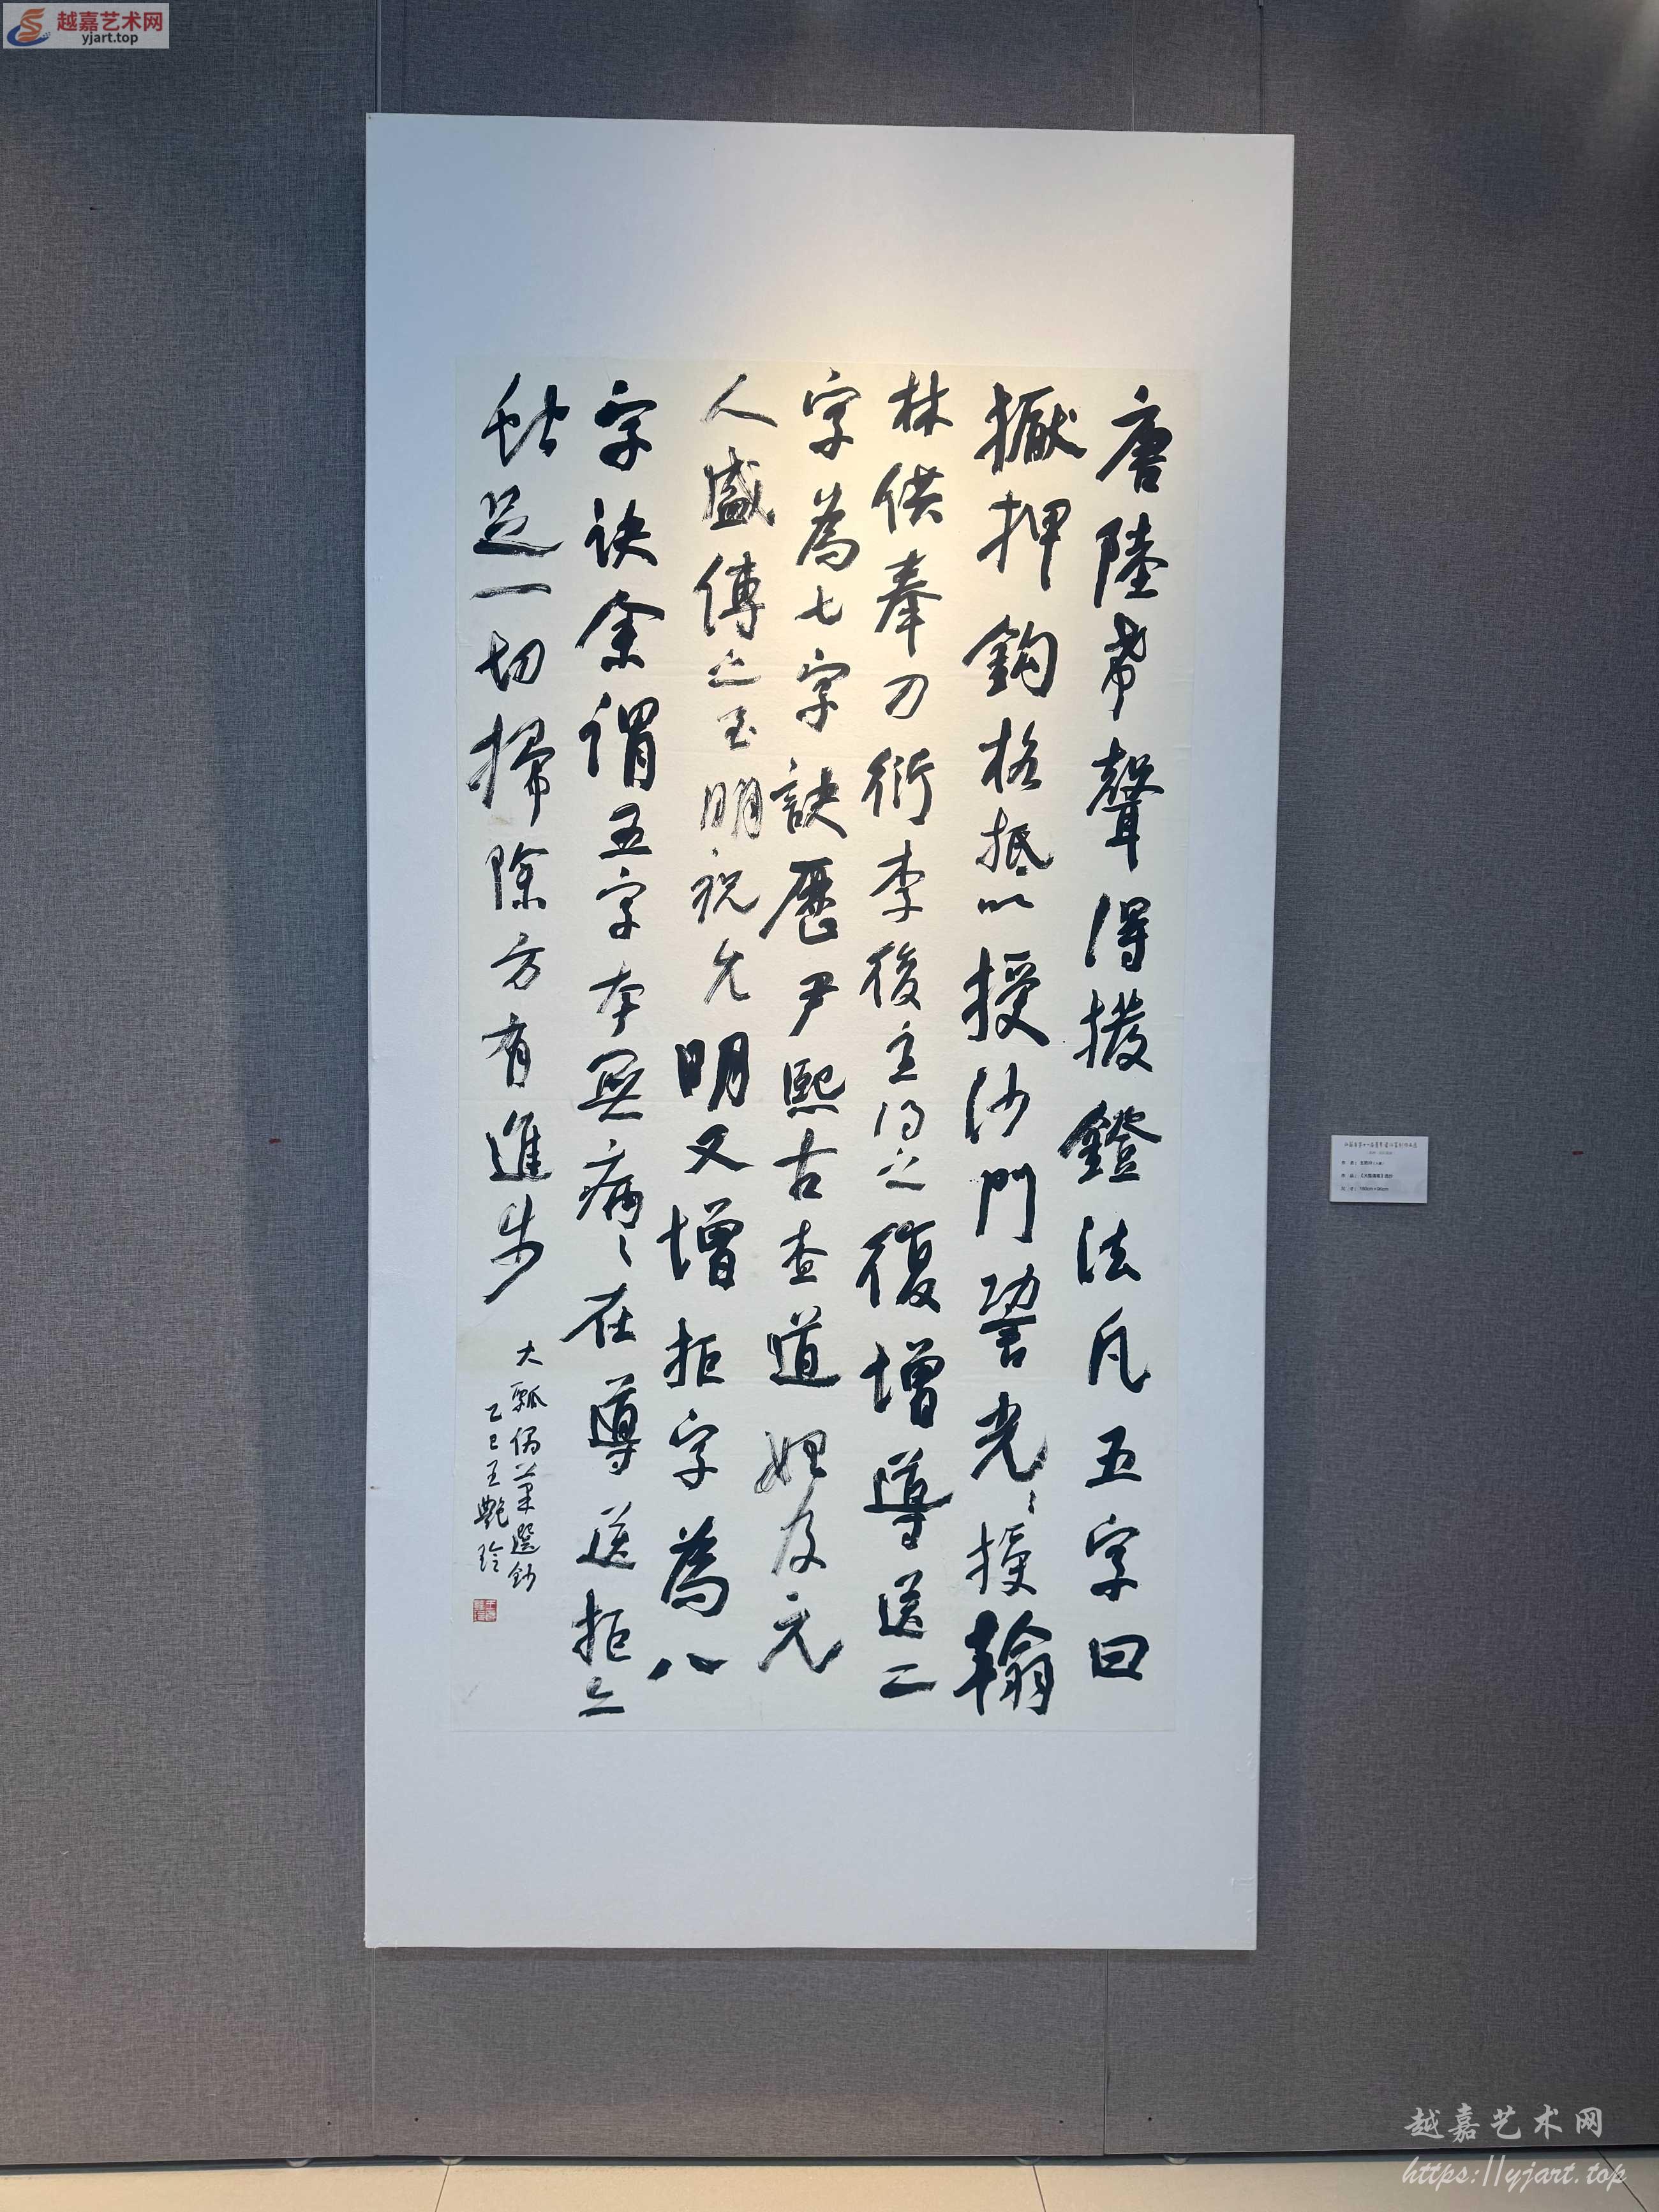 越嘉艺术网
yjart.top
唐陸希聲得撥鐙法凡五字曰
擫押鈎格抵以授沙門䛒光〻授翰
林供奉刀衍李後主得之復增導送二
字為七字訣歷尹熙古查道始及元
人盛傳之至明祝允明又增拒字為八
字訣余謂五字本無病〻在導送拒之
蛇足一切掃除方有進步
大瓢偶筆選鈔
乙巳王艷玲
越嘉艺术网
https://yjart.top